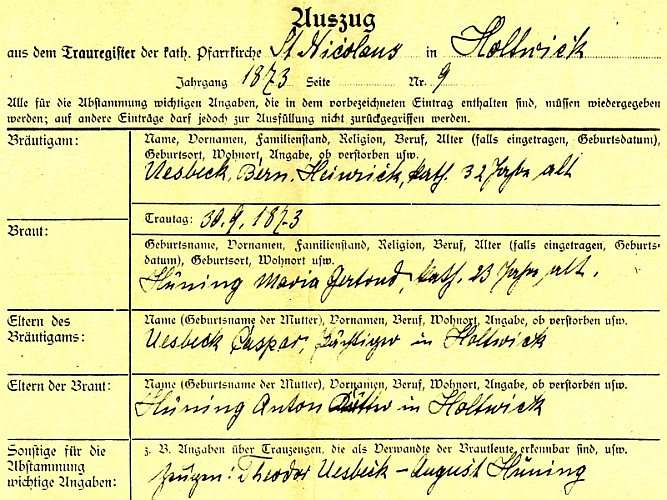 Auszug
aus dem Trauregister der kath. Pfarrkirche St Nicolaus in Holtwick
Jahrgang 1873 Seite Nr. 9
Alle für die Abstammung wichtigen Angaben, die in dem vorbezeichneten Eintrag enthalten sind, müssen wiedergegeben
werden; auf andere Einträge darf jedoch zur Ausfüllung nicht zurückgegriffen werden.
Bräutigam:
Name, Vornamen, Familienstand, Religion, Beruf, Alter (falls eingetragen, Geburtsdatum),
Geburtsort, Wohnort, Angabe, ob verstorben usw.
Uesbeck, Bern. Heinrich, kath. 32 Jahre alt
Trautag: 30.9.1873
Braut:
Geburtsname, Vornamen, Familienstand, Religion, Beruf, Alter (falls eingetragen, Geburts-
datum), Geburtsort, Wohnort usw.
Hüning Maria Gertrud, kath. 23 Jahre alt.
Eltern des
Bräutigams:
Name (Geburtsname der Mutter), Vornamen, Beruf, Wohnort, Angabe, ob verstorben usw.
Uesbeck Caspar, in Holtwick
Eltern der Braut:
Name (Geburtsname der Mutter), Vornamen, Beruf, Wohnort, Angabe, ob verstorben usw.
Hüning Anton in Holtwick
Sonstige für die
Abstammung
wichtige Angaben:
z. B. Angaben über Trauzeugen, die als Verwandte der Brautleute erkennbar sind, usw.
Zeugen: Theodor Uesbeck – August Hüning